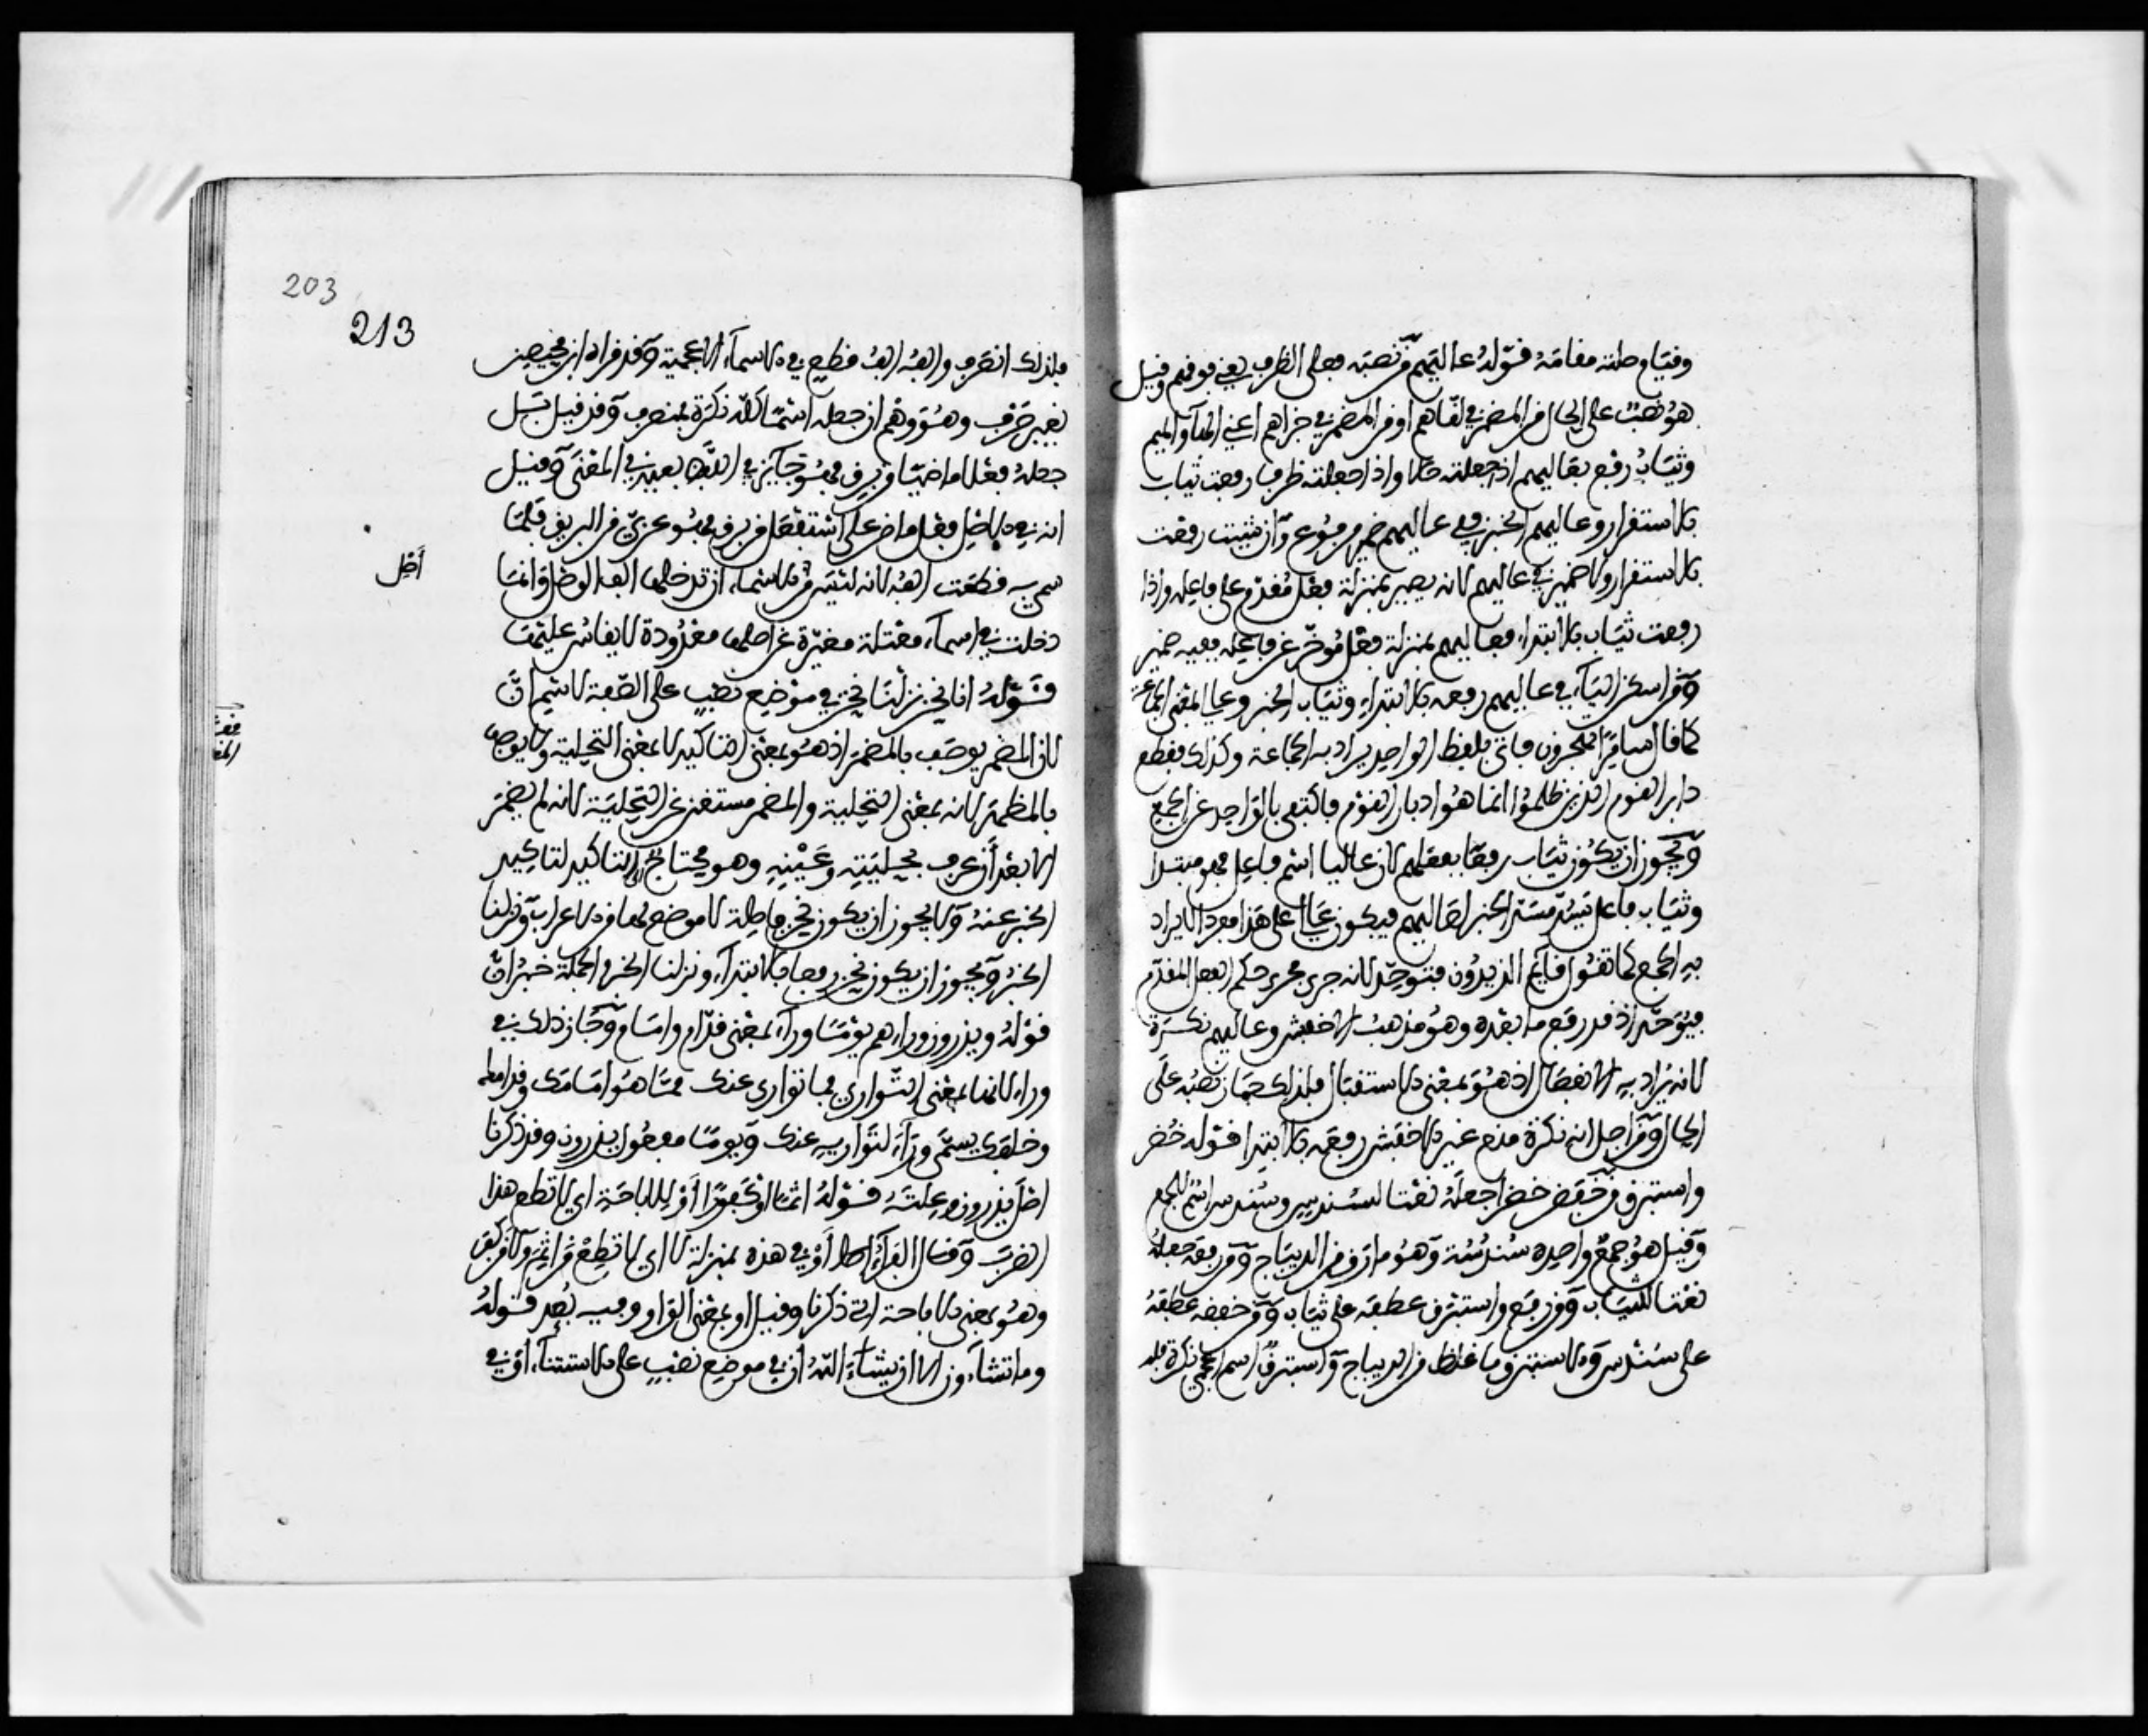 وقيام صلته مقامه قوله عاليهم من نصبه فعلى الظرف بمعنى فوقهم وقيل
هو نصب على الحال من المضمر في لقاهم او من المضمر في جزاهم اعني الهاء والميم
وثياب رفع بعاليهم اذا جعلته حالا واذا جعلته ظرفا رفعت ثياب
بالاستقرار وعاليهم الخبر وفي عاليهم ضمير مرفوع وان شيت رفعت
بالاستقرار ولا ضمير في عاليهم لانه يصير بمنزلة فعل مقدم على فاعله واذا
رفعت ثياب بالابتداء فعاليهم بمنزلة فعل مؤخر عن فاعله ففيه ضمير
ومن اسكن الياء في عاليهم رفعه بالابتداء وثياب الخبر وعالي بمعنى الجماعة
كما قال سامرا تهجرون فاتى بلفظ الواحد يراد به الجماعة وكذلك فقطع
دابر القوم الذين ظلموا انما هو ادبار القوم فاكتفى بالواحد عن الجمع
ويجوز ان يكون ثياب رفعا بفعلهم لان عاليا اسم فاعل فهو مبتدا
وثياب فاعل تسد مسد الخبر لعاليهم فيكون عالي على هذا مفردا لا يراد
به الجمع كما تقول قايم الزيدون فتوحد لانه جرى مجرى حكم الفعل المقدم
فيوحد اذ قد رفع ما بعده وهو مذهب الاخفش وعاليهم نكرة
لانه يراد به الانفصال اذ هو بمعنى الاستقبال فلذلك جاز نصبه على
الحال ومن اجل انه نكرة منع غير الاخفش رفعه بالابتدا قوله خضر
واستبرق من خفض خضرا جعله نعتا لسندس وسندس اسم للجمع
وقيل هو جمع واحده سندسة وهو ما رق من الديباج ومن رفعه جعله
نعتا للثياب ومن رفع واستبرق عطفه على ثياب ومن خفضه عطفه
على سندس والاستبرق ما غلظ من الديباج واستبرق اسم اعجمي نكرة فلذ
203
213
فلذلك انصرف والفه الف قطع في الاسماء الاعجمية وقد قراه ابن محيصن
بغير صرف وهو وهم ان جعله اسما لانه نكرة منصرف وقد قيل بل
جعله فعلا ماضيا من برق فهو جايز في اللفظ بعيد في المعنى وقيل
انه في الاصل فعل ماض على استفعل من برق فهو عربي من البريق فلما
سمي به قطعت الفه لانه ليس من الاسماء ان تدخلها الف الوصل وانما
أصل
دخلت في اسماء معتلة مغيرة عن اصلها معدودة لا يقاس عليها
قوله انا نحن نزلنا نحن في موضع نصب على الصفة لاسم ان
لان المضمر يوصف بالمضمر اذ هو بمعنى التاكيد لا بمعنى التحلية ولا يوصف
بالمظهر لانه بمعنى التحلية والمضمر مستغن عن التحلية لانه لم يضمر
الا بعد أن عرف تحليته وعينه وهو محتاج الى التاكيد لتاكيد
الخبر عنه ولا يجوز ان يكون نحن فاصلة لا موضع لها من الاعراب ونزلنا
الخبر ويجوز ان يكون نحن رفعا بالابتداء ونزلنا الخبر والجملة خبر ان
قوله ويذرون وراءهم يوما وراء بمعنى قدام وامام وجاز ذلك في
وراء لانها بمعنى التواري فما توارى عنك مما هو امامك وقدامك
وخلفك يسمى وراء لتواريه عنك ويوما مفعول يذرون وقد ذكرنا
اصل يذرون وعلته قوله اثما او كفورا أو للاباحة اي لا تطع هذا
الضرب وقال الفراء أو في هذه بمنزلة لا اي لا تطع من اثم ولا من كفر
وهو بمعنى الاباحة التي ذكرنا وقيل او بمعنى الواو وفيه بعد قوله
وما تشاءون الا ان يشاء الله أن في موضع نصب على الاستثناء أو في